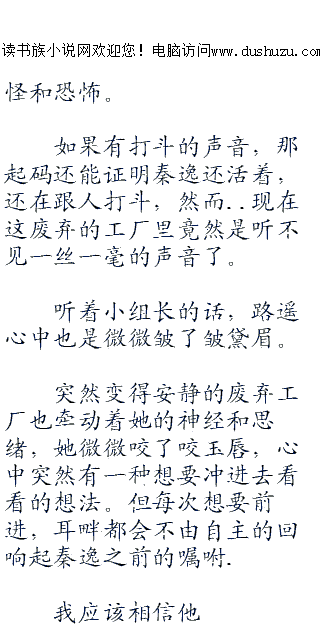 读书族小说网欢迎您！电脑访问www.dushuzu.com
怪和恐怖。
如果有打斗的声音，那
起码还能证明秦逸还活着，
还在跟人打斗，然而..现在
这废弃的工厂里竟然是听不
见一丝一毫的声音了。
听着小组长的话，路遥
心中也是微微皱了皱黛眉。
突然变得安静的废弃工
厂也牵动着她的神经和思
绪，她微微咬了咬玉唇，心
中突然有一种想要冲进去看
看的想法。但每次想要前
进，耳畔都会不由自主的回
响起秦逸之前的嘱咐.
我应该相信他